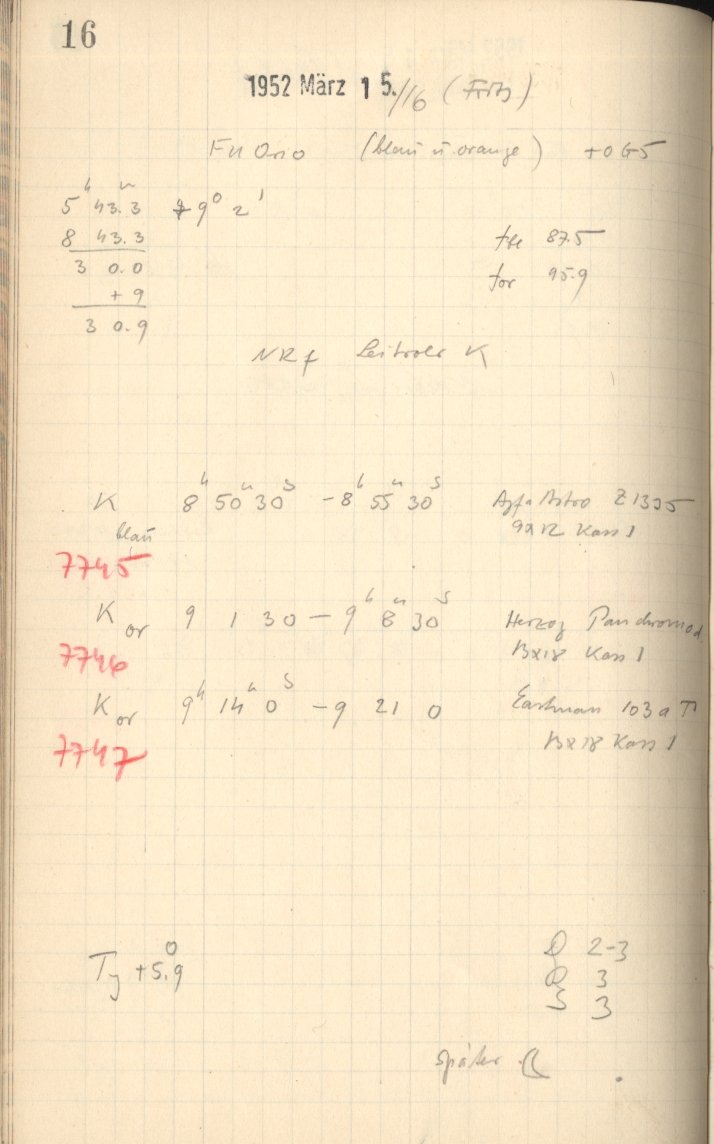 16
1952 März 15./16 (Fritz)
FU Orio (blau u. orange) +0G5
5h 43.3m +9° 2'
8 43.3
3 0.0
+ 9
3 0.9
fbl 87.5
for 95.9
NRf Leitrohr K
K blau 8h 50m 30s - 8h 55m 30s Agfa Astro Z1335
9x12 Kass 1
7745
K or 9 1 30 - 9h 8m 30s Herzog Panchromod.
13x18 Kass 1
7746
K or 9h 14m 0s - 9 21 0 Eastman 103a T
13x18 Kass 1
7747
T +5.9°
D 2-3
R 3
S 3
später